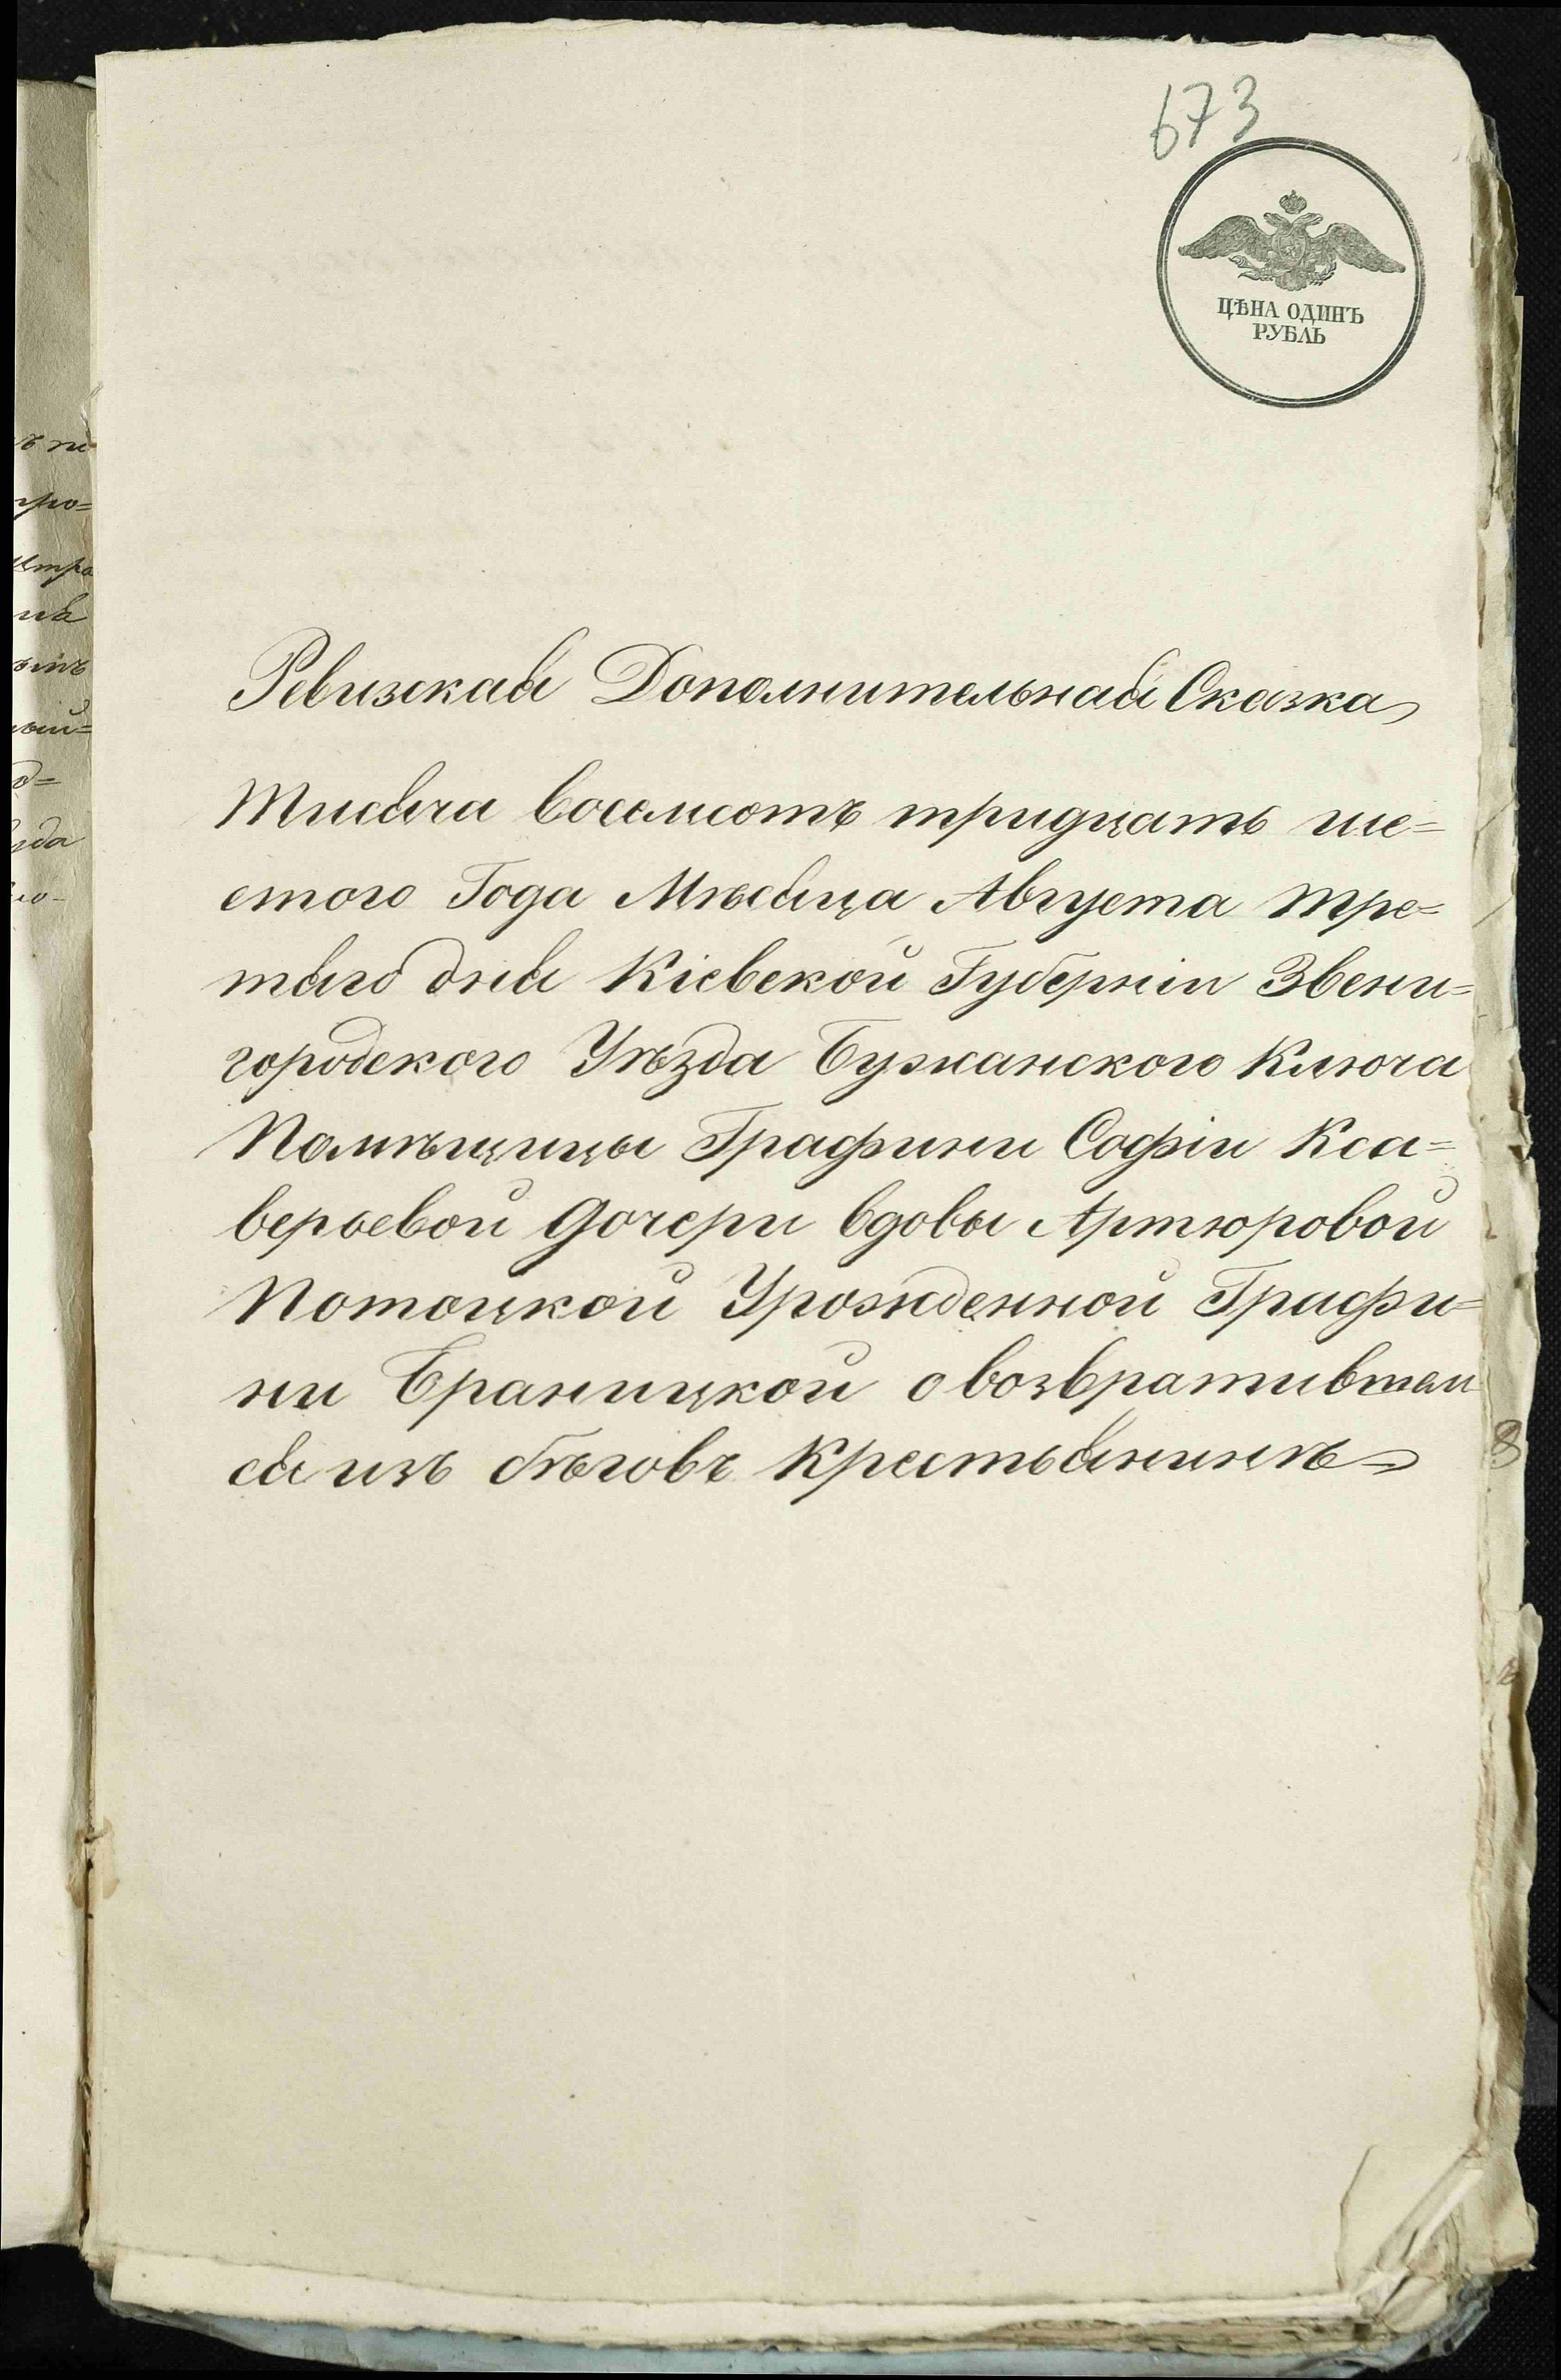 673
ЦѢНА ОДИНЪ
РУБЛЬ
Ревизская Дополнительная Сказка
Тисяча восемсотъ тридцать ше=
стого Года Мѣсяца Августа тре=
тяго дня Кіевской Губерніи Звени=
городского Уѣзда Бужанского Ключа
Помѣщицы Графини Софіи Кса=
верьевой дочери вдовы Артюровой
Потоцкой Урожденной Графи=
ни Браницкой о возвратившем
ся изъ бѣговъ крестьянинѣ